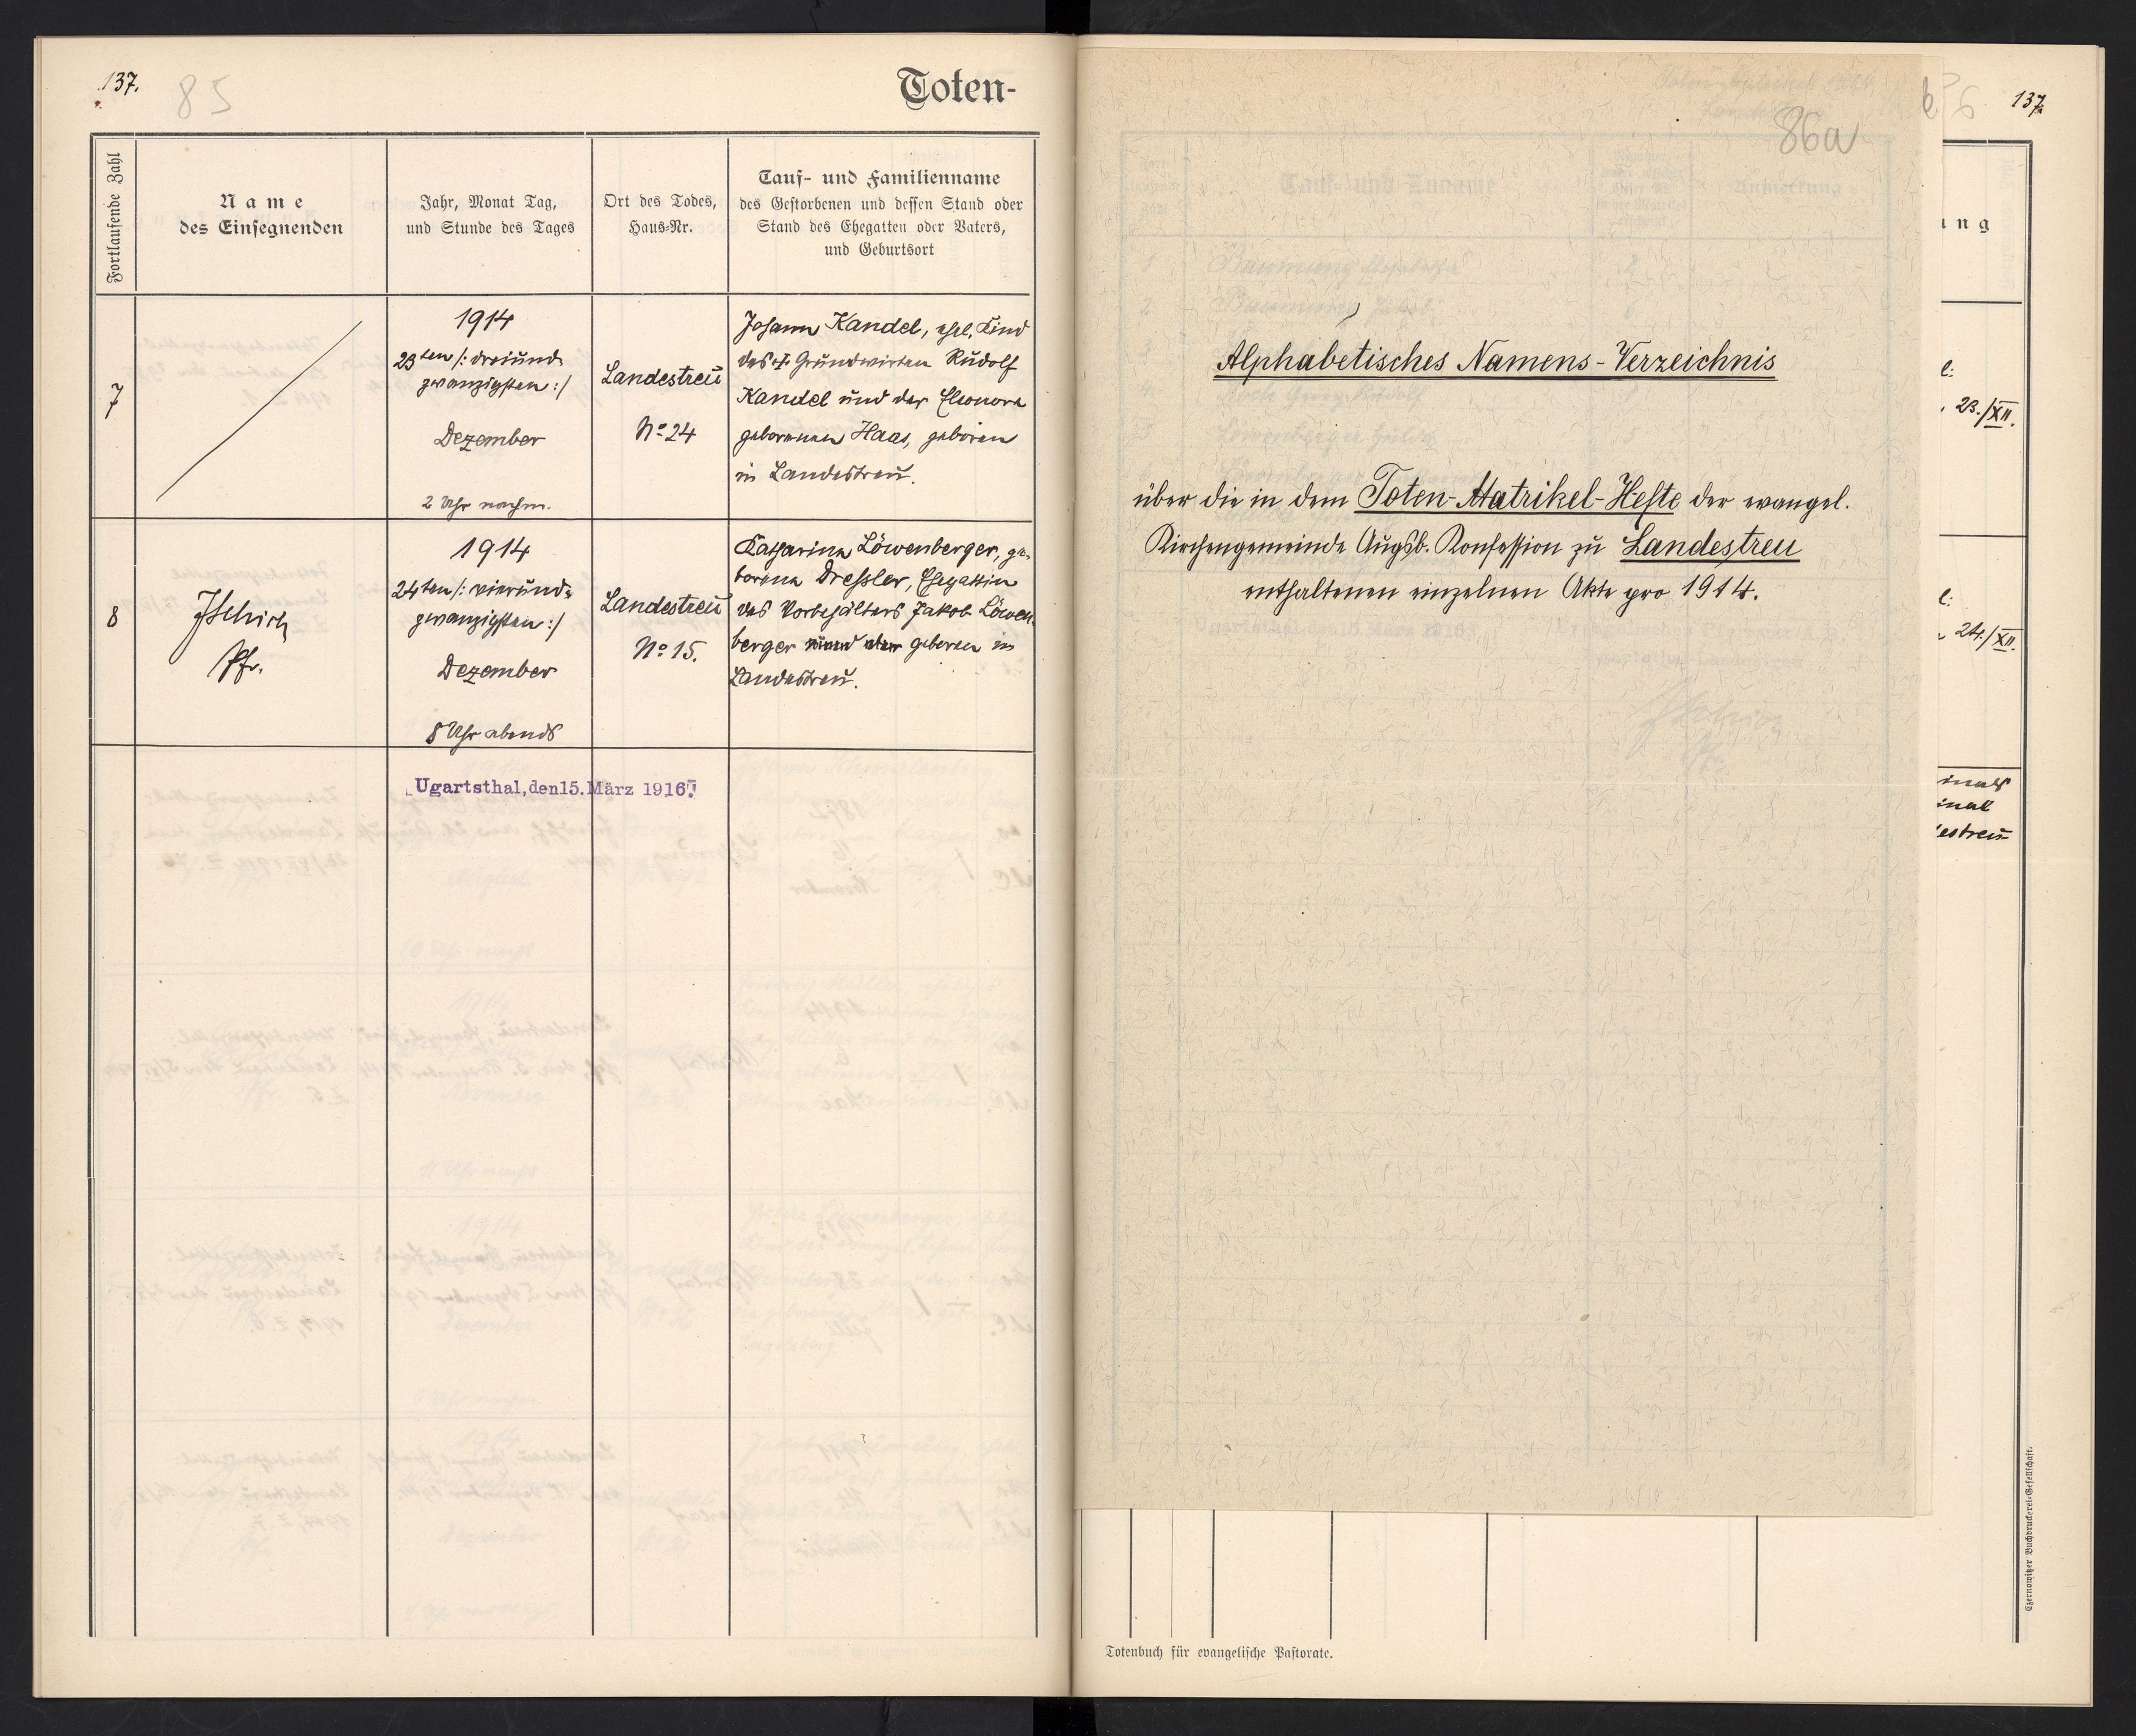 137.
85
Toten-
Fortlaufende Zahl
Name
des Einsegnenden
Jahr, Monat Tag,
und Stunde des Tages
Ort des Todes,
Haus-Nr.
Tauf- und Familienname
des Gestorbenen und dessen Stand oder
Stand des Ehegatten oder Vaters,
und Geburtsort
7
1914
23ten /: dreiund-
zwanzigsten :/
Dezember
2 Uhr nachm.
Landestreu
No 24
Johann Kandel, ehel. Kind
des Grundwirten Rudolf
Kandel und der Eleonora
geborenen Haas, geboren
in Landestreu.
8
Pfr.
1914
24ten /: vierund-
zwanzigsten :/
Dezember
8 Uhr abends
Landestreu
No 15.
Katharina Löwenberger, ge-
borene Dressler, Ehegattin
des Vorbehälters Jakob Löwen-
berger geboren in
Landestreu.
Ugartsthal, den 15. März 1916.
86a
Alphabetisches Namens-Verzeichnis
über die in dem Toten-Matrikel-Hefte der evangel.
Kirchengemeinde Augsb. Konfession zu Landestreu
enthaltenen einzelnen Akte pro 1914.
137.
ng
23./XII.
24./XII.
Czernowitzer Buchdruckerei-Gesellschaft.
Totenbuch für evangelische Pastorate.